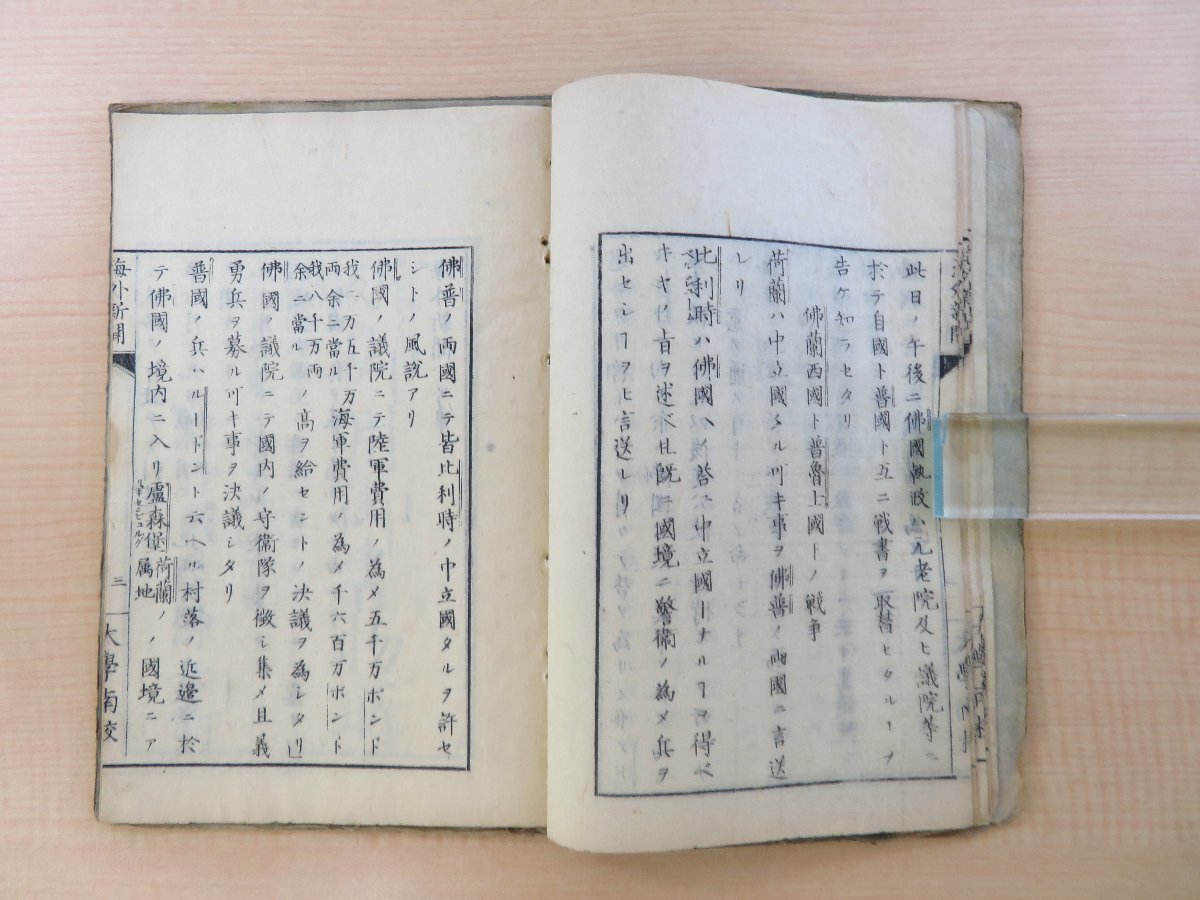 此日ノ午後ニ佛國執政ハ元老院及ヒ議院等ニ
於テ自國ト普國ト互ニ戰書ヲ取替ヒタルヿヲ
告ケ知ラセタリ
佛蘭西國ト普魯士國トノ戰争
荷蘭ハ中立國タル可キ事ヲ佛普ノ両國ニ言送
レリ
比利時ハ佛國ヘ答ニ中立國トナルヿヲ得ベ
キヤノ旨ヲ述ベ且既ニ國境ニ警衛ノ為メ兵ヲ
出セシヿヲヒ言送レリ
佛普ノ両國ニテ皆比利時ノ中立國タルヲ許セ
シトノ風説アリ
佛國ノ議院ニテ陸軍費用ノ為メ五千万ポンド
我二万五千万両余ニ當ル海軍費用ノ為メ千六百万ポンド
我八千万両余ニ當ルノ高ヲ給セントノ決議ヲ為シタリ
佛國ノ議院ニテ國内ノ守衛隊ヲ徴シ集メ且義
勇兵ヲ募ル可キ事ヲ決議シタリ
普國ノ兵ハルードント云ヘル村落ノ近邉ニ於
テ佛國ノ境内ニ入リ盧森堡荷蘭ノ属地ノ國境ニア
海外新聞
三
大學南校